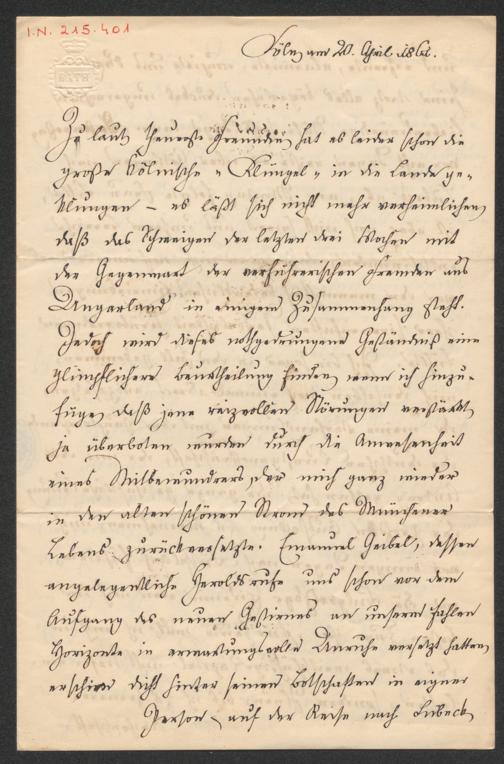 I.N. 215.401
Cöln am 20. April 1861.
Zu laut, theuerste Freundin, hat es leider schon die
große Kölnische „Klüngel“ in die Lande ge-
klungen – es läßt sich nicht mehr verheimlichen,
daß das Schweigen der letzten drei Wochen mit
der Gegenwart der verführerischen Fremden aus
Ungarland in einigem Zusammenhang steht.
Jedoch wird dieses nothgedrungene Geständniß eine
glimpflichere Beurtheilung finden, wenn ich hinzu-
füge, daß jene reizvollen Störungen verstärkt,
ja überboten wurden durch die Anwesenheit
eines Mitbewundrers, der mich ganz wieder
in den alten schönen Strom des Münchener
Lebens zurückversetzte. Emanuel Geibel, dessen
angelegentliche Heroldsrufe uns schon vor dem
Aufgang des neuen Gestirnes an unserm fahlen
Horizonte in erwartungsvolle Unruhe versetzt hatten,
erschien dicht hinter seinen Botschaften in eigner
Person, auf der Reise nach Lübeck